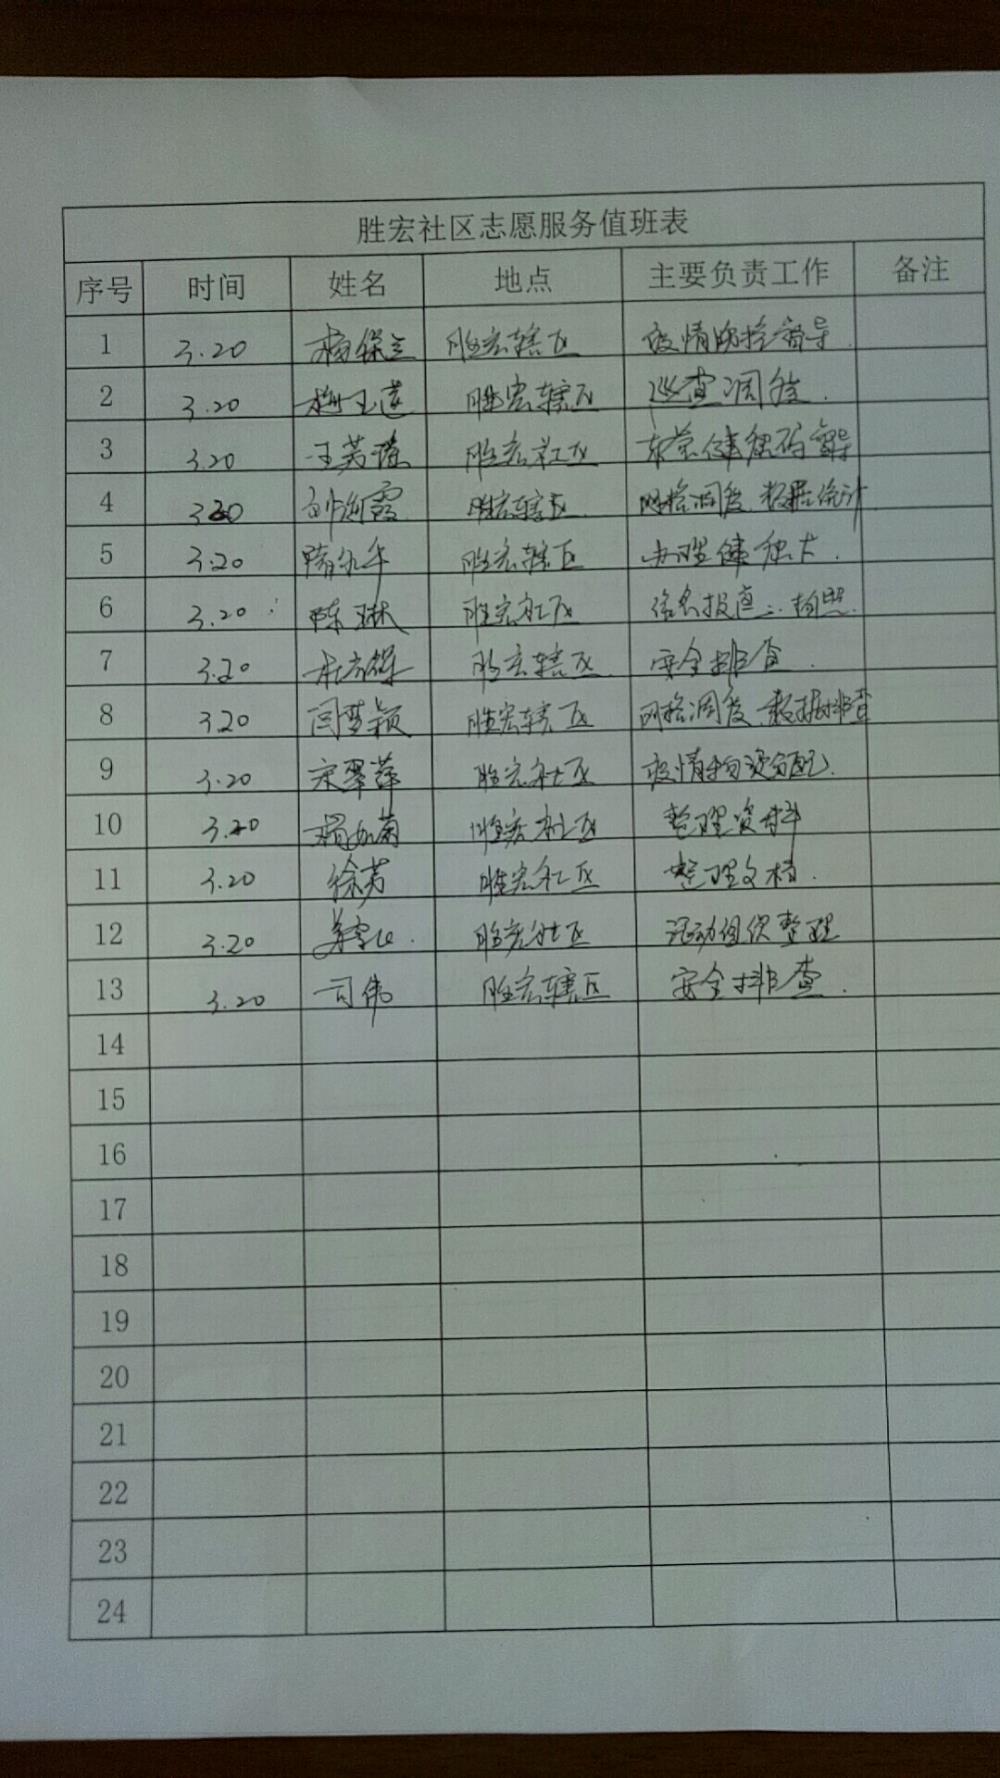 胜宏社区志愿服务值班表
序号 时间 姓名 地点 主要负责工作 备注
1 3.20 杨保兰 胜宏辖区 疫情防控督导
2 3.20 胜宏辖区 巡查调度.
3 3.20 王芙蓉 胜宏社区 东营健康码督导
4 3.20 孙海霞 胜宏辖区 网格调度、数据统计
5 3.20 隋永华 胜宏辖区 办理健康卡.
6 3.20 陈琳 胜宏社区 拍照.
7 3.20 胜宏辖区 安全排查.
8 3.20 闫梦颖 胜宏辖区 网格调度 数据排查
9 3.20 宋翠萍 胜宏社区 疫情物资分配
10 3.20 胜宏社区 整理资料
11 3.20 徐芳 胜宏社区 整理文档.
12 3.20 胜宏社区 活动组织整理
13 3.20 司伟 胜宏辖区 安全排查.
14
15
16
17
18
19
20
21
22
23
24